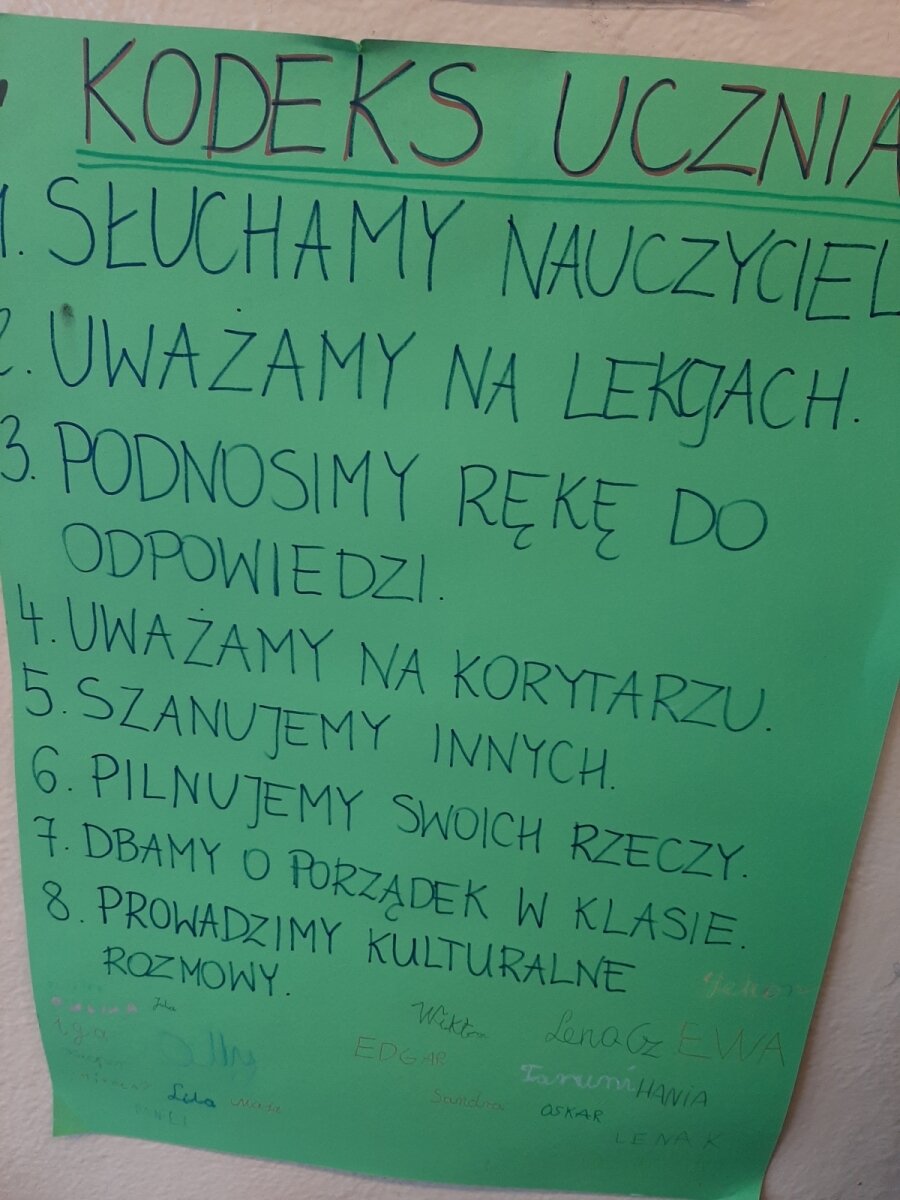 KODEKS UCZNIA
1. SŁUCHAMY NAUCZYCIEL
2. UWAŻAMY NA LEKCJACH.
3. PODNOSIMY RĘKĘ DO
ODPOWIEDZI.
4. UWAŻAMY NA KORYTARZU.
5. SZANUJEMY INNYCH.
6. PILNUJEMY SWOICH RZECZY.
7. DBAMY O PORZĄDEK W KLASIE.
8. PROWADZIMY KULTURALNE
ROZMOWY.
Wiktor LenaCz EWA
Iga EDGAR
Taruni HANIA
Lila Sandra OSKAR
LENA K